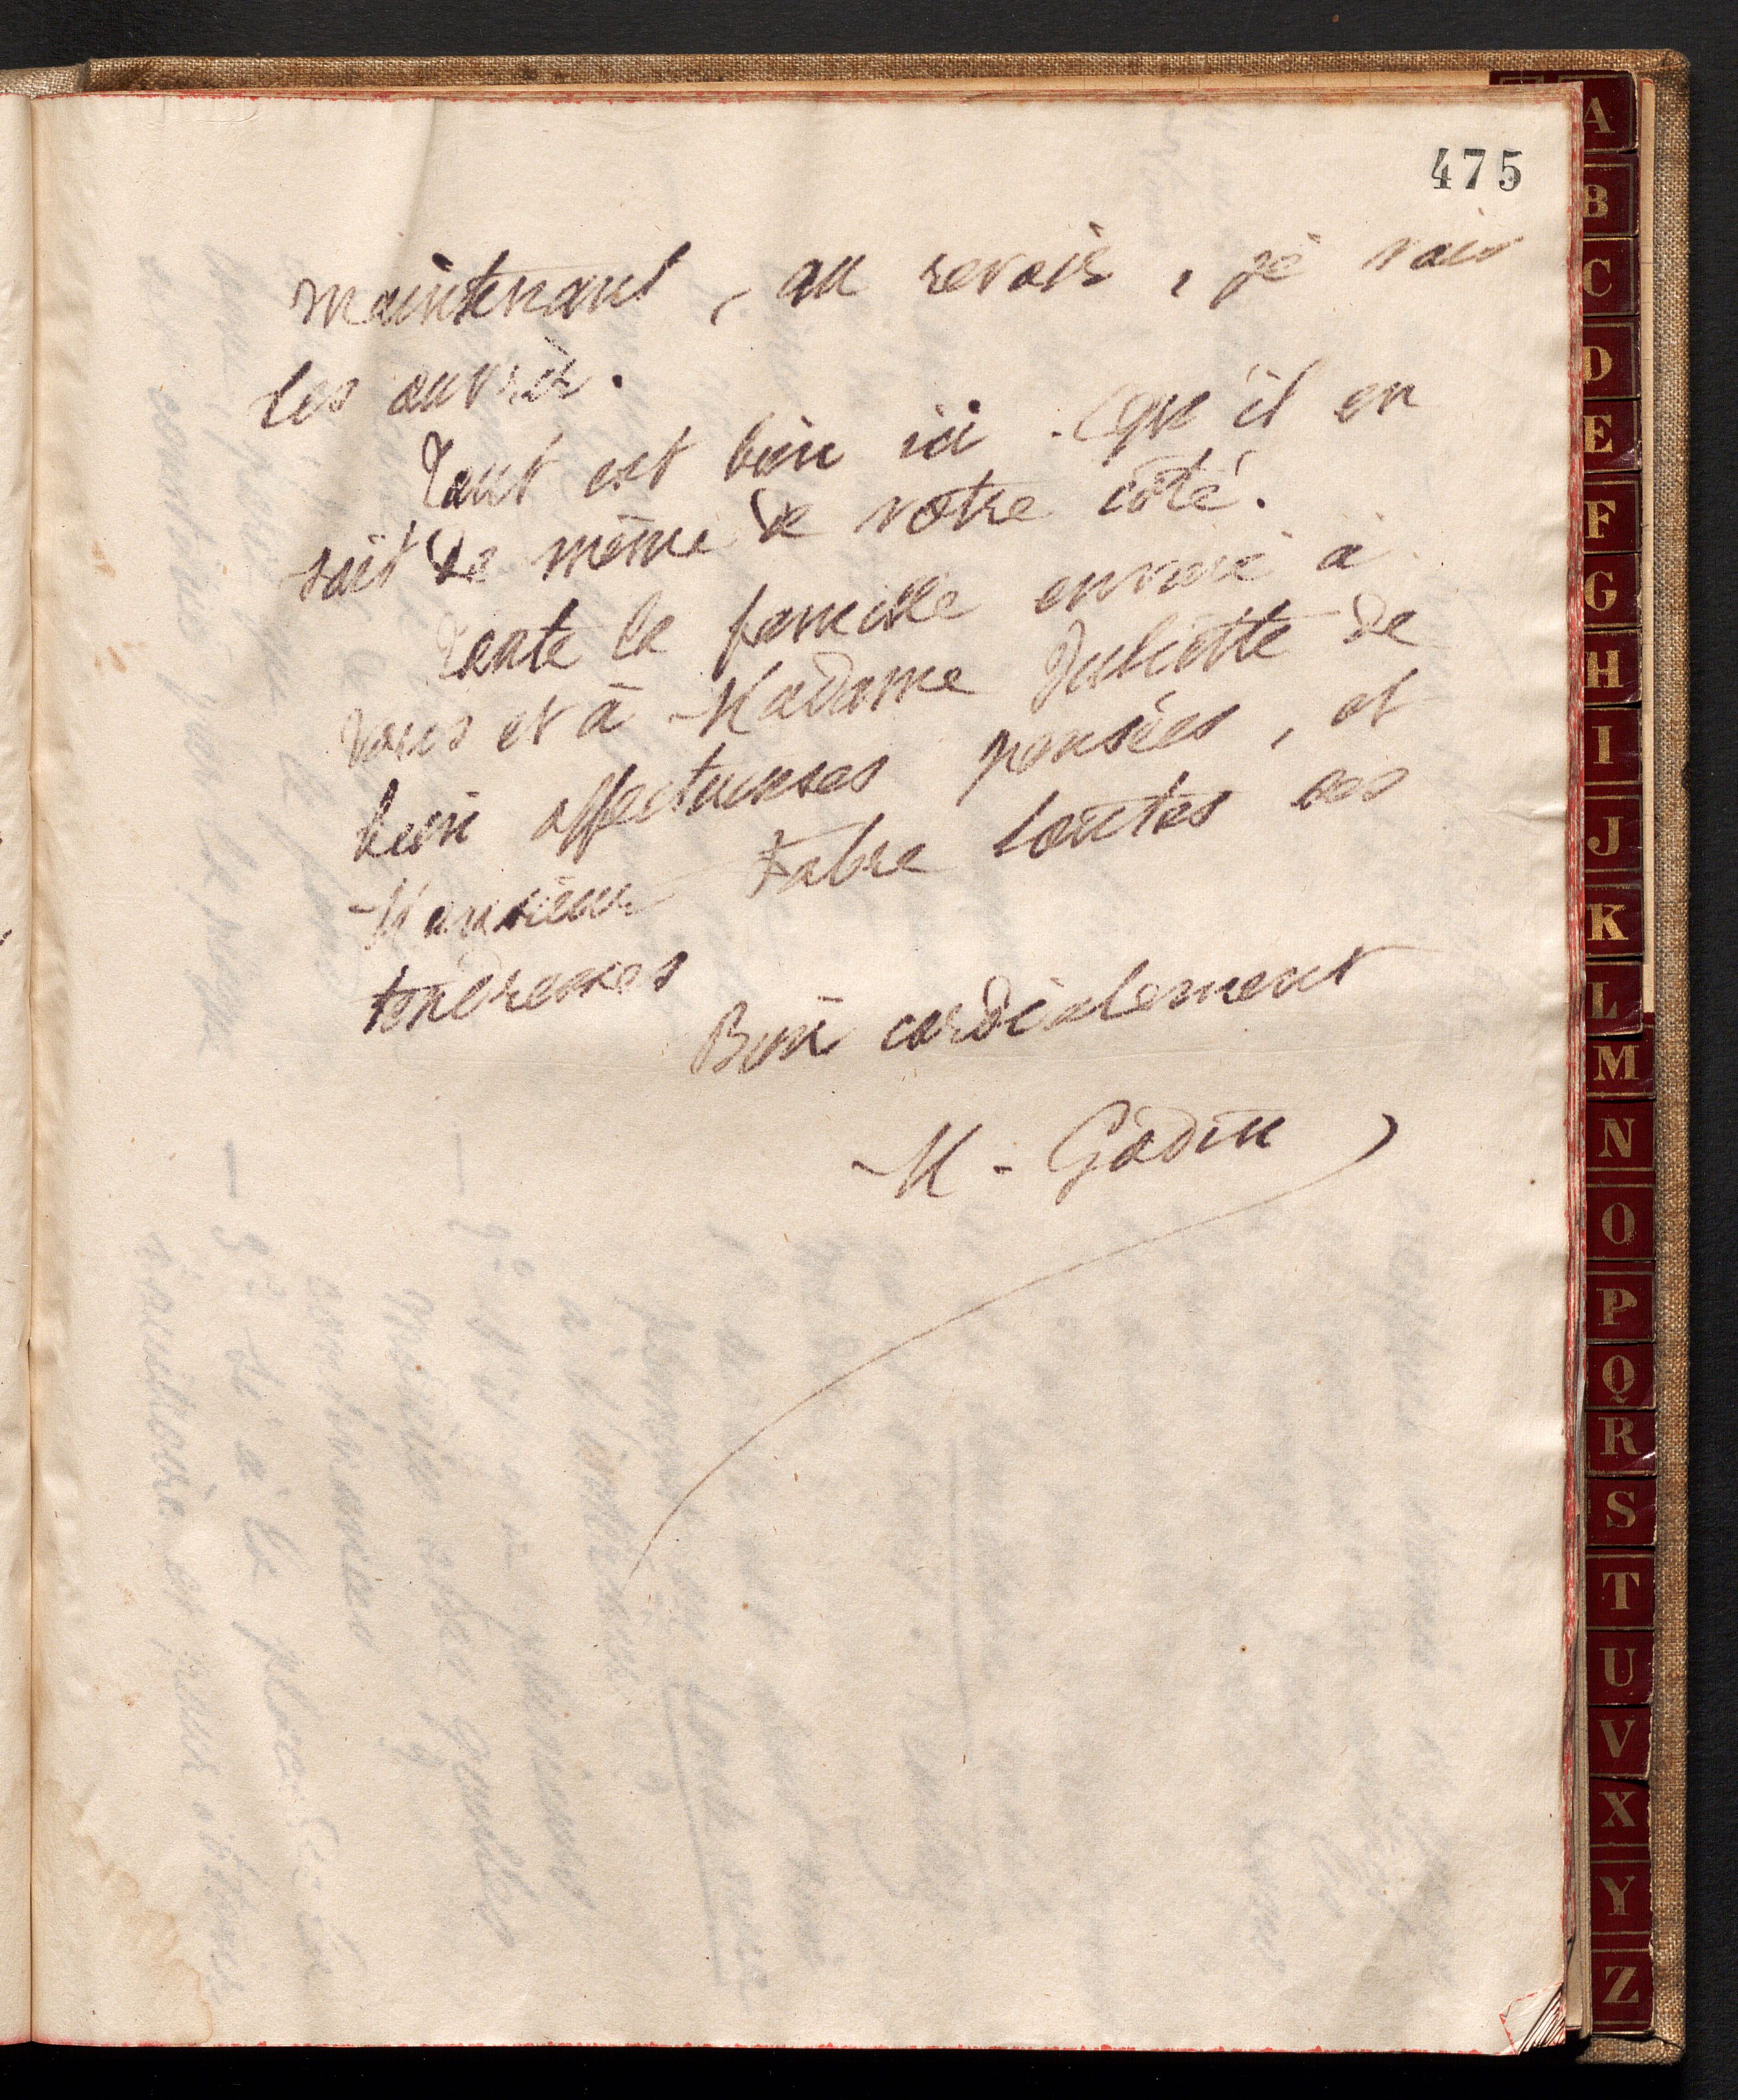 475
maintenant, au revoir, je vais
les ouvrir.
Tout est bien ici. Qu'il en
soit de même de votre côté.
Toute la famille envoie à
vous et à Madame Juliette de
bien affectueuses pensées, et
Monsieur Fabre toutes ses
tendresses
Bien cordialement
M. Godin
A
B
C
D
E
F
G
H
I
J
K
L
M
N
O
P
Q
R
S
T
U
V
X
Y
Z